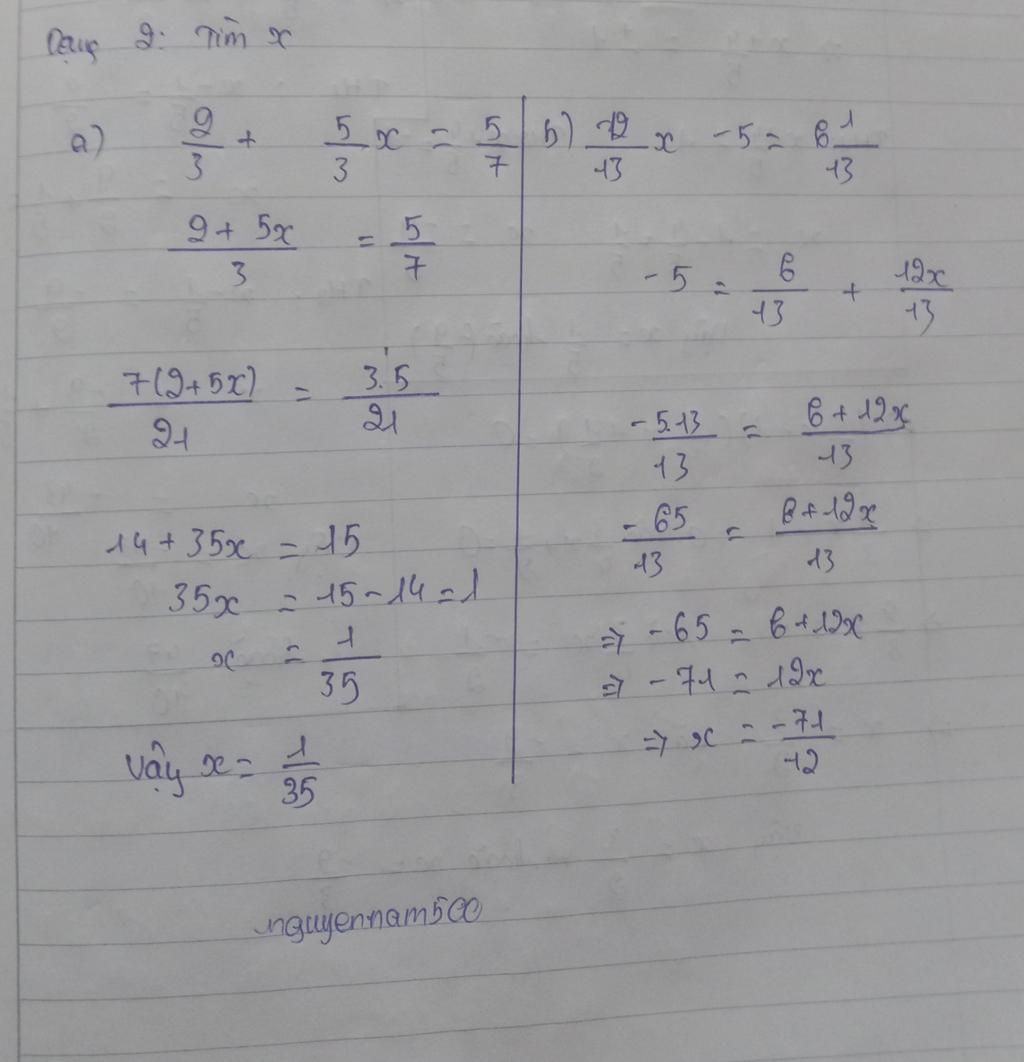 Dạng 2: Tìm x
a) 2/3 + 5/3 x = 5/7
(2 + 5x)/3 = 5/7
7(2+5x)/21 = 3.5/21
14 + 35x = 15
35x = 15 - 14 = 1
x = 1/35
Vậy x = 1/35
b) 12/13 x - 5 = 6 1/13
-5 = 6/13 + 12x/13
-5.13/13 = (6 + 12x)/13
-65/13 = (6 + 12x)/13
=> -65 = 6 + 12x
=> -71 = 12x
=> x = -71/12
nguyennam500